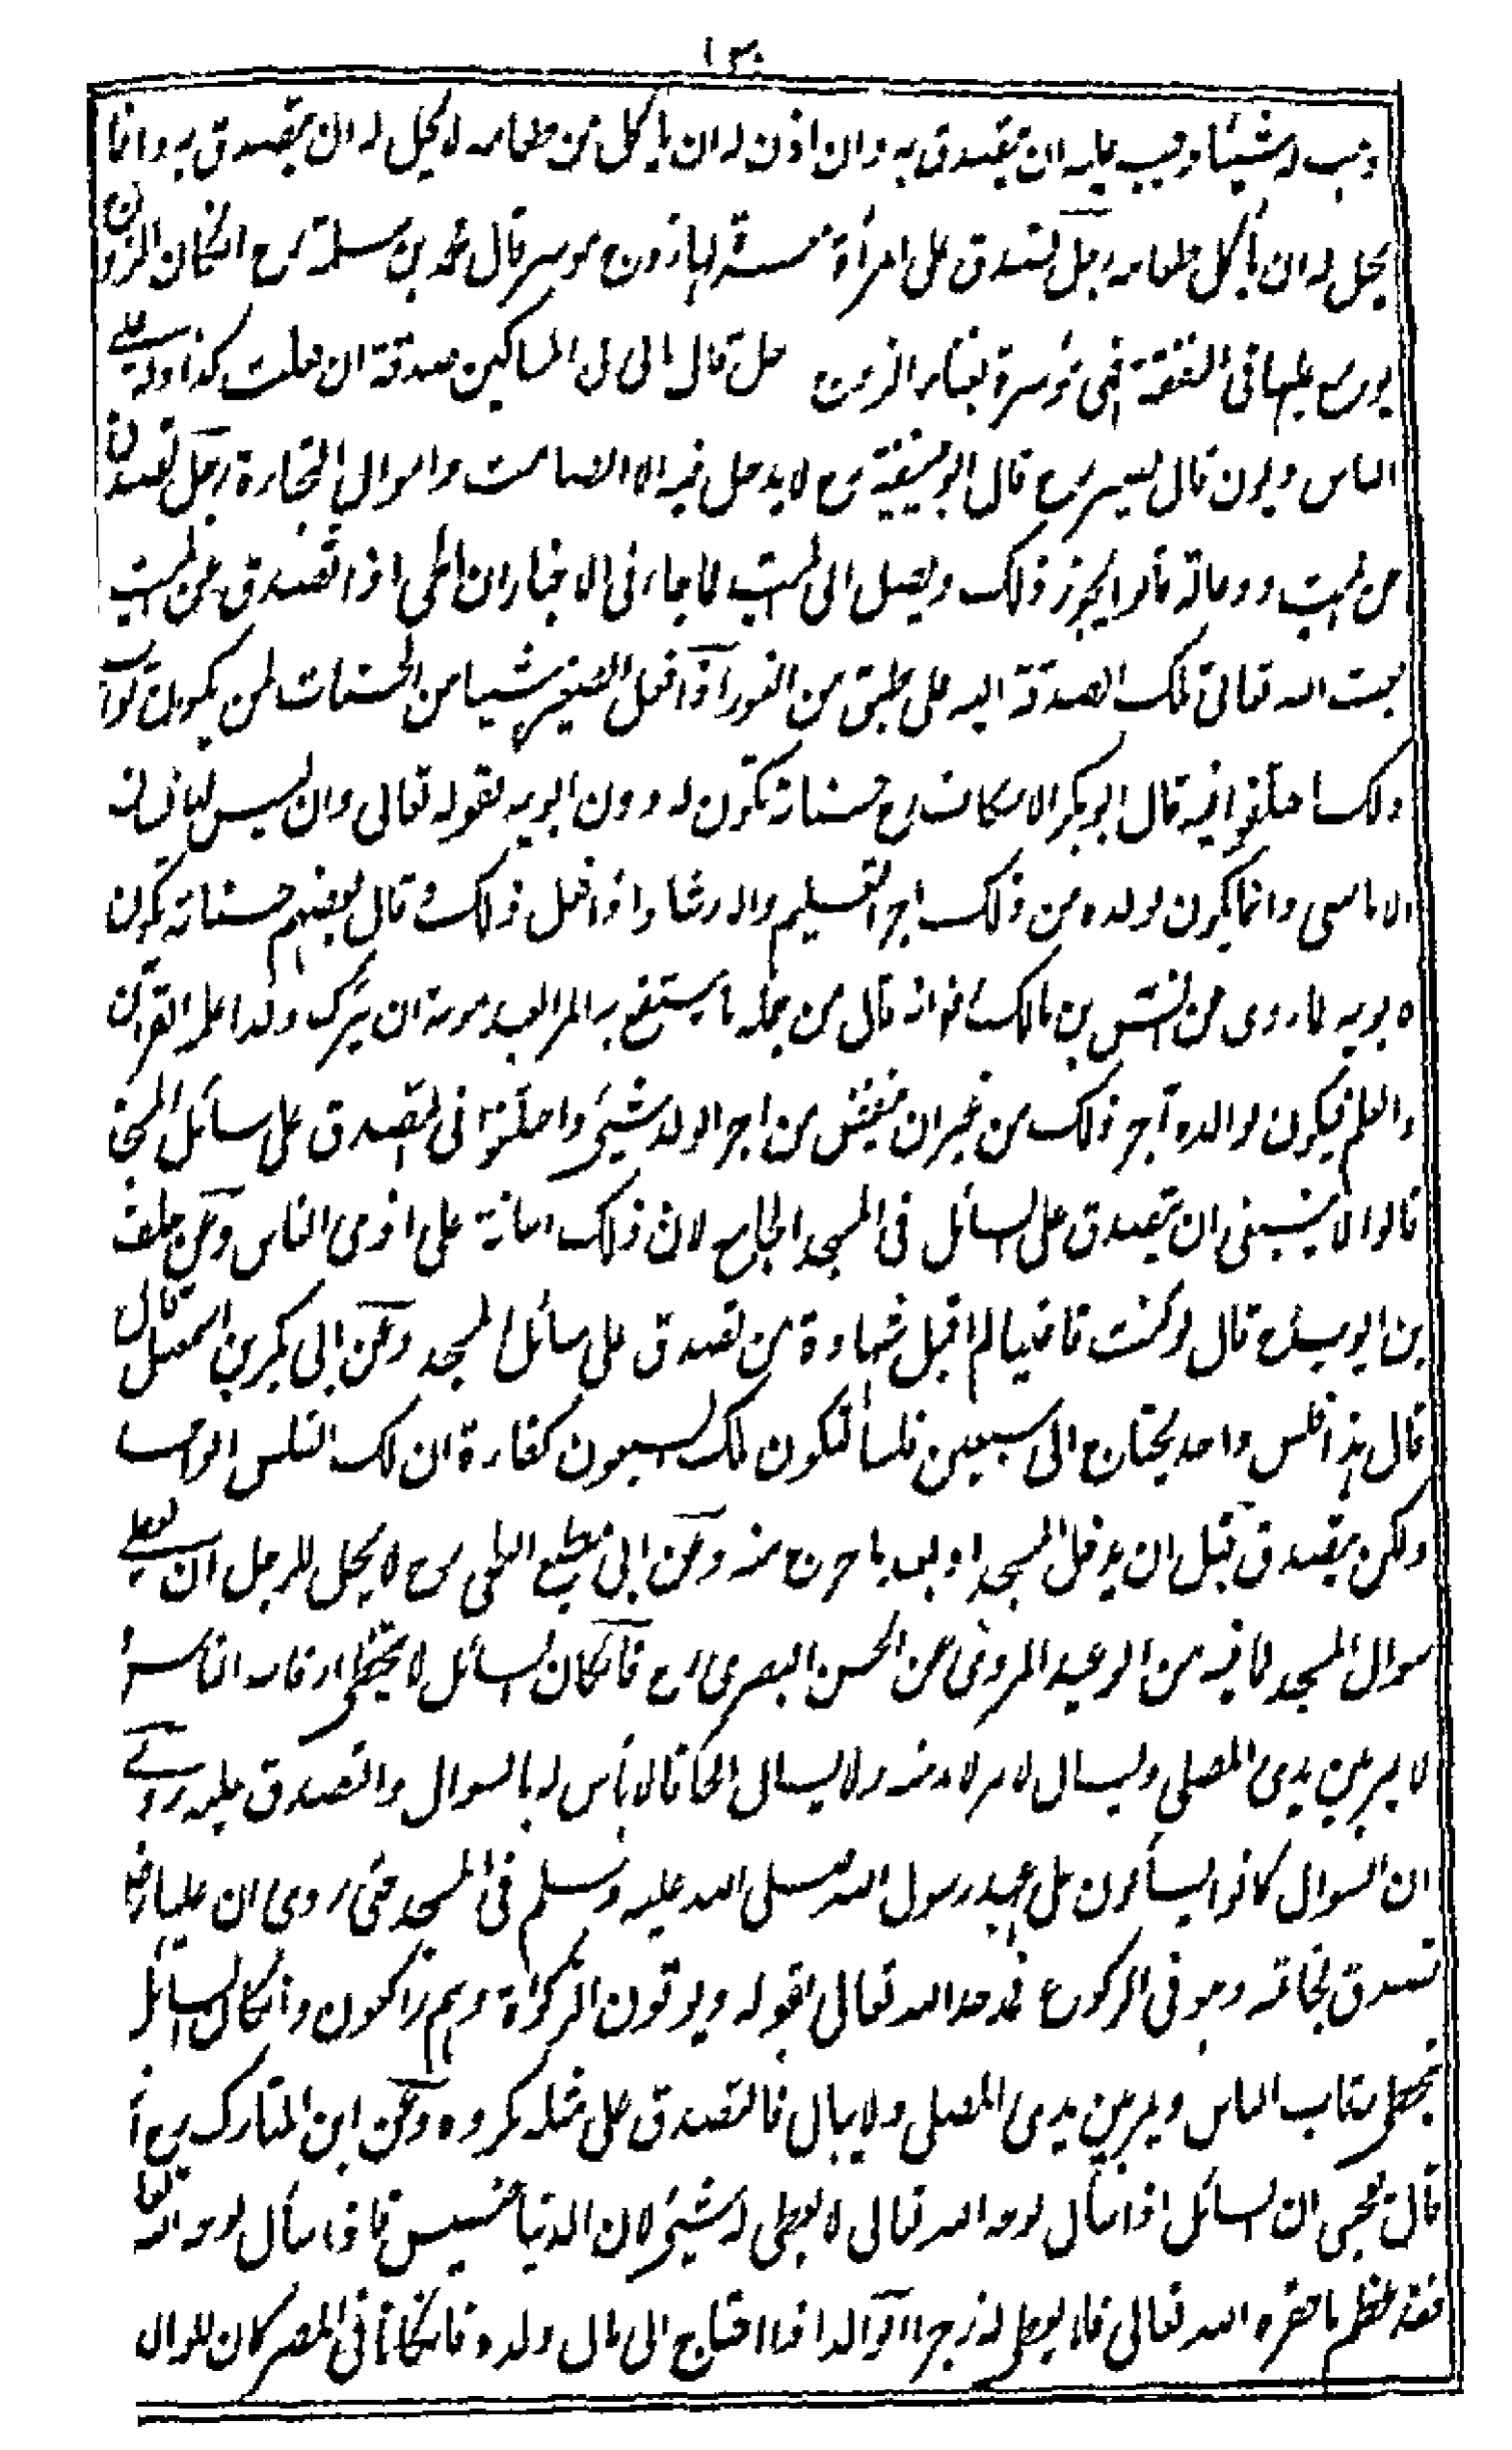 ١٣٠
وهب له شيئا وجب عليه ان يتصدق به وان اذن له ان ياكل من طعامه لا يحل له ان يتصدق به وانما
يحل له ان يأكل طعامه رجل تصدق على امرأة معسرة لها زوج موسر قال محمد بن سلمة رح انكان الزوج
يوسع عليها فى النفقة فهى موسرة بغناء الزوج رجل قال مالى فى المساكين صدقة ان فعلت كذا وله على
الناس ديون قال نصير رح قال ابو حنيفة رح لا يدخل فيه الا الصامت واموال التجارة رجل تصدق
عن الميت ودعا له قالوا يجوز ذلك ويصل الى الميت لما جاء فى الاخبار ان الحى اذا تصدق عن الميت
بعث الله تعالى تلك الصدقة اليه على طبق من النور اذا فعل الصغير شيا من الحسنات لمن يكون ثواب
ذلك اختلفوا فيه قال ابو بكر الاسكاف رح حسناته تكون له دون ابويه لقوله تعالى وان ليس للانسان
الا ما سعى وانما يكون لوالده من ذلك اجر التعليم والارشاد اذا فعل ذلك وقال بعضهم حسناته تكون
لابويه لما روى عن انس بن مالك انه قال من جملة ما ينتفع به المرا بعد موته ان يترك ولدا علم القران
والعلم فيكون لوالده اجر ذلك من غير ان ينقص من اجر الولد شيئ واختلفوا فى التصدق على سائل المسجد
قالوا لا ينبغى ان يتصدق على السائل فى المسجد الجامع لان ذلك اعانة على اذى الناس وعن خلف
بن ايوب رح قال لو كنت قاضيا لم اقبل شهادة من تصدق على سائل المسجد وعن ابى بكر بن اسمعيل
قال هذا فلس واحد يحتاج الى سبعين فلسا لتكون تلك السبعون كفارة ان تلك الفلس الواحد
ولكن يتصدق قبل ان يدخل المسجد او بعد ما خرج منه وعن ابى مطيع البلخى رح لا يحل للرجل ان يعطى
سوال المسجد لما فيه من الوعيد المروى عن الحسن البصرى رح فانكان السائل لا يتخطى رقاب الناس و
لا يمر بين يدى المصلى ويسال لامر لا بد منه ولا يسال الحافا لا بأس له بالسوال والتصدق عليه روى
ان السوال كانوا يسألون على عهد رسول الله صلى الله عليه وسلم فى المسجد حتى روى ان عليا رض
تصدق بخاتمه وهو فى الركوع فمدحه الله تعالى بقوله ويوتون الزكواة وهم راكعون وانكان السائل
يتخطى رقاب الناس ويمر بين يدى المصلى ولا يبالى فالتصدق على مثله مكروه وعن ابن المبارك رح انه
قال يعجبنى ان السائل اذا سأل لوجه الله تعالى لا يعطى له شيئ لان الدنيا خسيس فاذا سأل لوجه الله تعالى
فقد عظم ما حقره الله تعالى فلا يعطى له زجرا الوالد اذا احتاج الى مال ولده فانكانا فى المصر كان للوالد